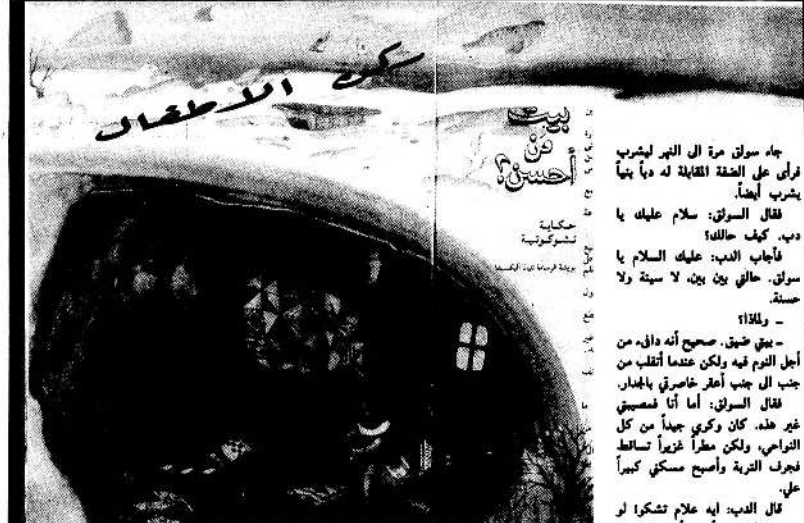 ركن الاطفال
بيت
مَن
أحسن؟
حكاية
تشوكوتية
جاء سولق مرة الى النهر ليشرب
فرأى على الضفة المقابلة له دباً بنياً
يشرب أيضاً.
فقال السولق: سلام عليك يا
دب. كيف حالك؟
فأجاب الدب: عليك السلام يا
سولق. حالتي بين بين، لا سيئة ولا
حسنة.
ـ ولماذا؟
ـ بيتي ضيق. صحيح أنه دافىء من
أجل النوم فيه ولكن عندما أتقلب من
جنب الى جنب أعقر خاصرتي بالجدار.
فقال السولق: أما أنا فمصيبتي
غير هذه. كان وكري جيداً من كل
النواحي، ولكن مطراً غزيراً تساقط
فجرف التربة وأصبح مسكني كبيراً
علي.
قال الدب: ايه علام تشكو! لو